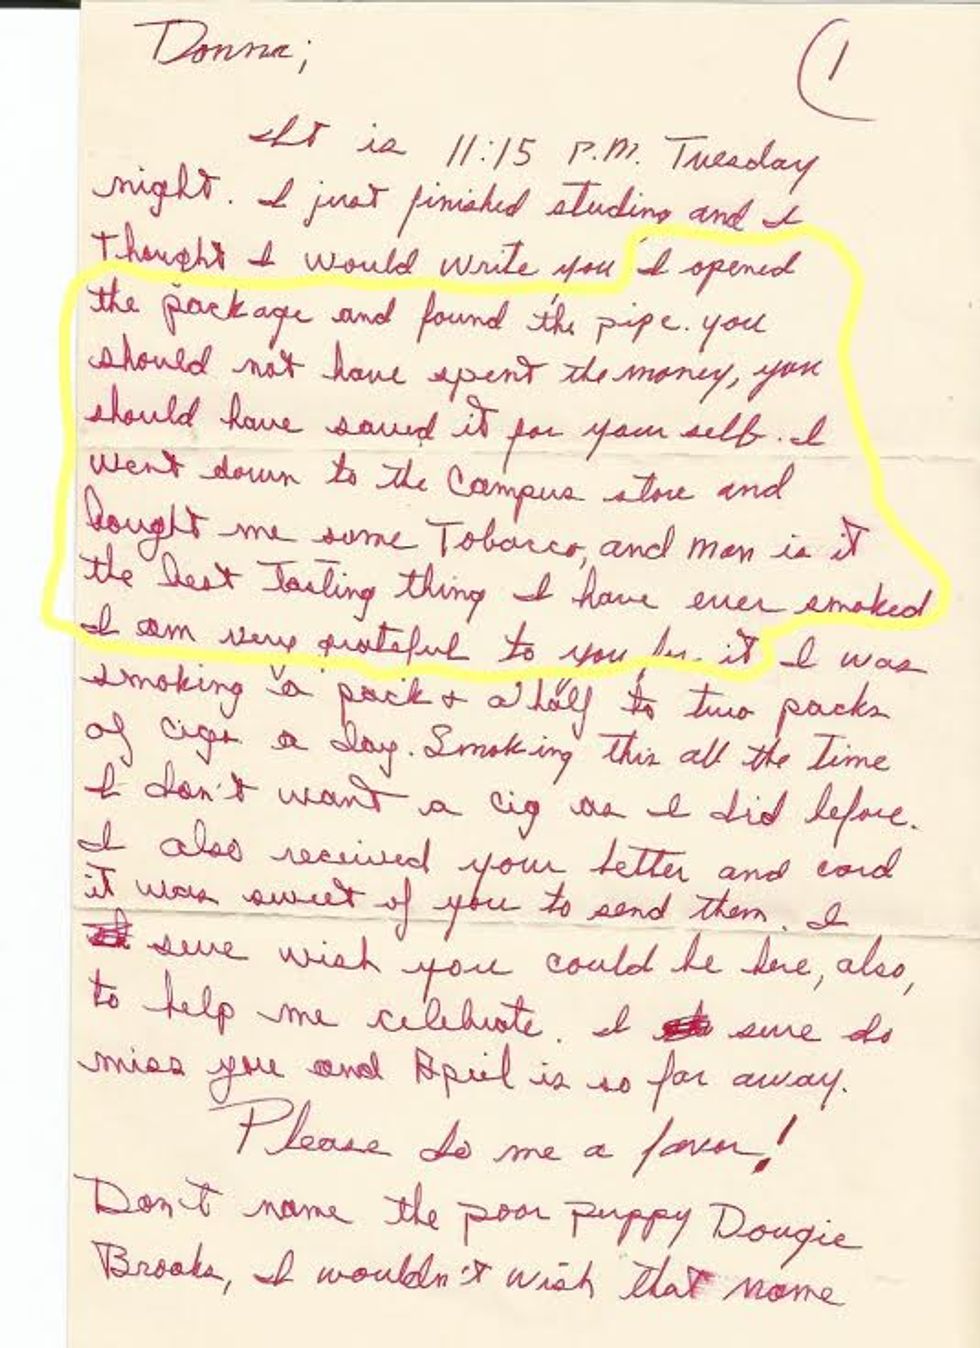 Donna;
1
It is 11:15 P.M. Tuesday
night. I just finished studing and I
thought I would write you I opened
the package and found the pipe. you
should not have spent the money, you
should have saved it for your self. I
went down to the Campus store and
bought me some Tobacco, and man is it
the best Tasting thing I have ever smoked
I am very grateful to you for it I was
smoking "a pack & a half" to two packs
of cigs a day. Smoking this all the time
I don't want a cig as I did before.
I also received your letter and card
it was sweet of you to send them. I
sure wish you could be here, also,
to help me celebrate. I sure do
miss you and April is so far away.
Please do me a favor!
Don't name the poor puppy Dougie
Brooks, I wouldn't wish that name